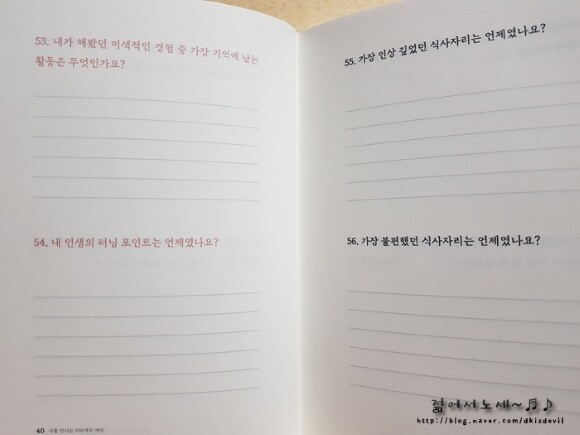 53. 내가 해봤던 이색적인 경험 중 가장 기억에 남는
활동은 무엇인가요?
54. 내 인생의 터닝 포인트는 언제였나요?
40 나를 만나는 500개의 계단
55. 가장 인상 깊었던 식사자리는 언제였나요?
56. 가장 불편했던 식사자리는 언제였나요?
젊어서노세~♬♪
http://blog.naver.com/dkizdevil